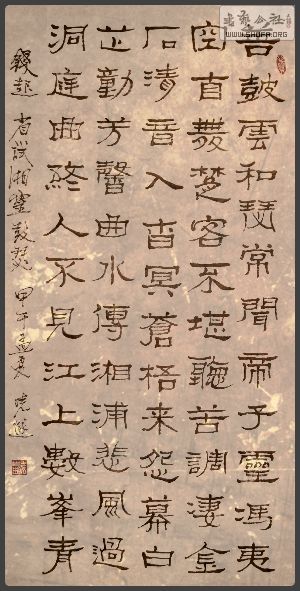 善鼓雲和瑟常聞帝子靈馮夷
空自舞楚客不堪聽苦調淒金
石清音入杳冥蒼梧来怨慕白
芷動芳馨曲水傳湘浦悲風過
洞庭曲終人不見江上數峯青
錢起 省試湘靈鼓瑟 甲午孟夏
书艺公社
WWW.SHUFA.ORG